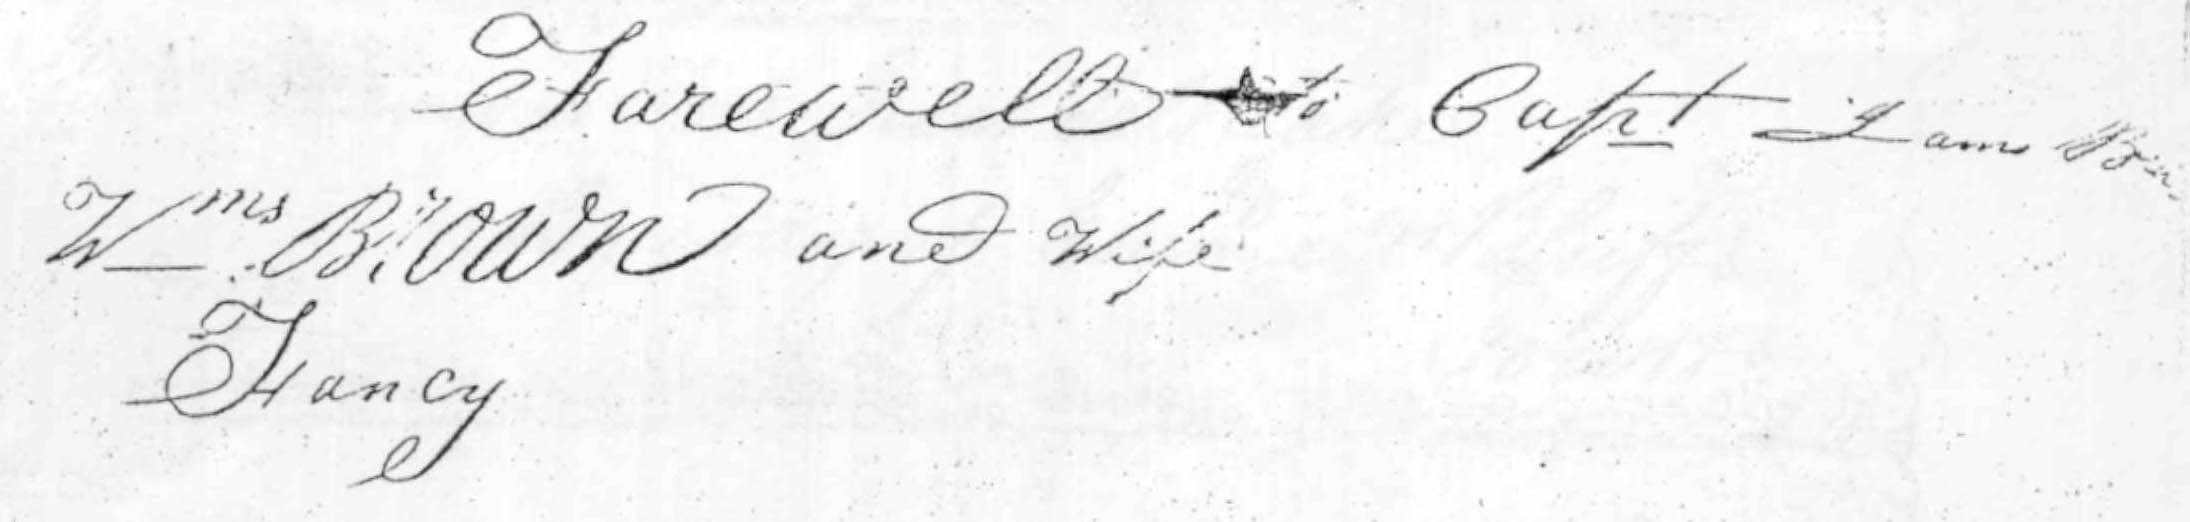 Farewell to Capt
Wms Brown and Wife
Fancy